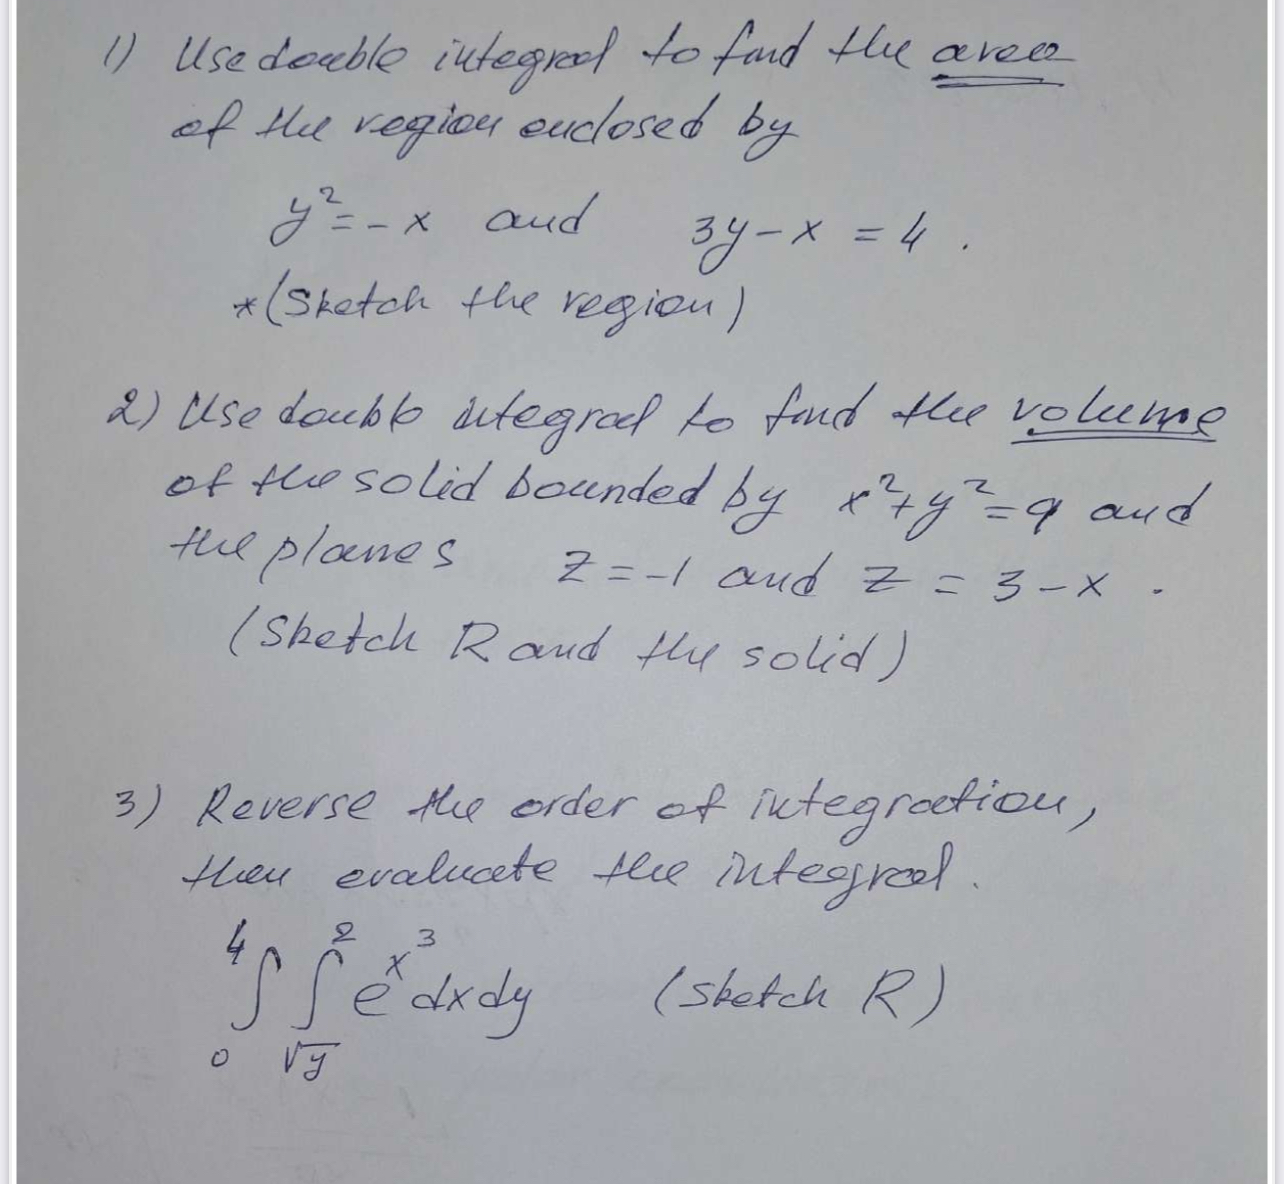 1) Use double integral to find the area
of the region enclosed by
y²=-x and 3y-x = 4 .
*(Sketch the region)
2) Use double integral to find the volume
of the solid bounded by x²+y²=9 and
the planes z=-1 and z = 3-x .
(Sketch R and the solid)
3) Reverse the order of integration,
then evaluate the integral.
∫₀⁴ ∫_√y² e^x³ dxdy (sketch R)